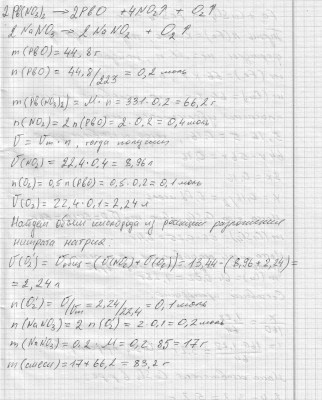 2 Pb(NO₃)₂ → 2PbO + 4NO₂↑ + O₂↑
2 NaNO₃ → 2 NaNO₂ + O₂↑
m(PbO) = 44,8 г
n(PbO) = 44,8/223 = 0,2 моль
m(Pb(NO₃)₂) = M · n = 331 · 0,2 = 66,2 г
n(NO₂) = 2n(PbO) = 2 · 0,2 = 0,4 моль
V = Vm · n, тогда получим
V(NO₂) = 22,4 · 0,4 = 8,96 л
n(O₂) = 0,5 n(PbO) = 0,5 · 0,2 = 0,1 моль
V(O₂) = 22,4 · 0,1 = 2,24 л
Найдем объем кислорода из реакции разложения
нитрата натрия
V(O₂') = Vобщ - (V(NO₂) + V(O₂)) = 13,44 - (8,96 + 2,24) =
= 2,24 л
n(O₂') = V/Vm = 2,24/22,4 = 0,1 моль
n(NaNO₃) = 2 n(O₂') = 2 · 0,1 = 0,2 моль
m(NaNO₃) = 0,2 · M = 0,2 · 85 = 17 г
m(смеси) = 17 + 66,2 = 83,2 г